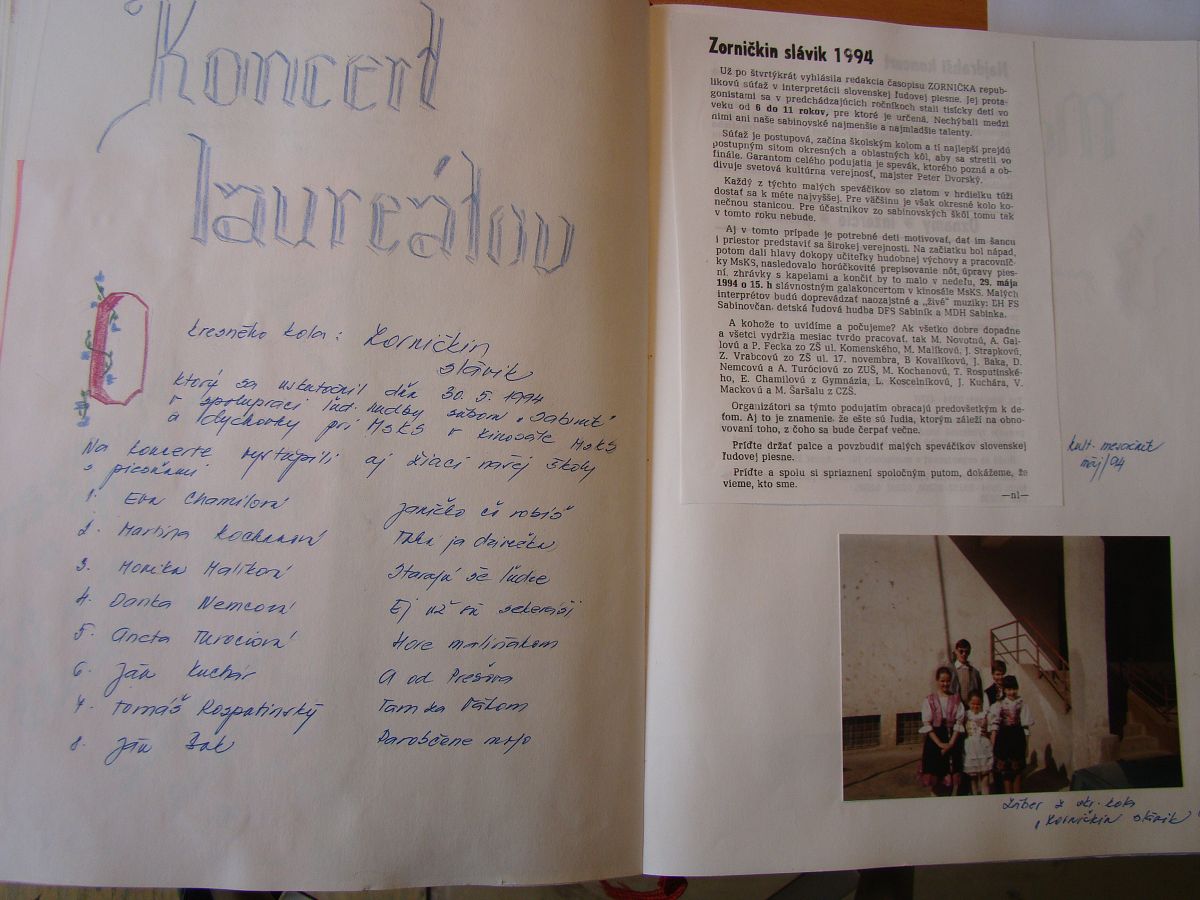 Koncert
laureátov
Okresného kola: Zorničkin
slávik
ktorý sa uskutočnil dňa 30. 5. 1994
v spolupráci ľud. hudby súboru „Sabinik"
a dychovky pri MsKS v kinosále MsKS
Na koncerte vystúpili aj žiaci našej školy
s piesňami
1. Eva Chamilová Janíčko čo robíš
2. Martina Kochanová ja dzivečka
3. Monika Malíková Starajú še ľudze
4. Danka Nemcová Ej už
5. Aneta Turociová Hore maliňakom
6. Ján Kuchár A od Prešova
7. Tomáš Rozputinský Tam za Váhom
8. Ján Bak Parobčene mojo
Zorničkin slávik 1994
Už po štvrtýkrát vyhlásila redakcia časopisu ZORNIČKA repub-
likovú súťaž v interpretácii slovenskej ľudovej piesne. Jej prota-
gonistami sa v predchádzajúcich ročníkoch stali tisícky detí vo
veku od 6 do 11 rokov, pre ktoré je určená. Nechýbali medzi
nimi ani naše sabinovské najmenšie a najmladšie talenty.
Súťaž je postupová, začína školským kolom a tí najlepší prejdú
postupným sitom okresných a oblastných kôl, aby sa stretli vo
finále. Garantom celého podujatia je spevák, ktorého pozná a ob-
divuje svetová kultúrna verejnosť, majster Peter Dvorský.
Každý z týchto malých speváčikov so zlatom v hrdielku túži
dostať sa k méte najvyššej. Pre väčšinu je však okresné kolo ko-
nečnou stanicou. Pre účastníkov zo sabinovských škôl tomu tak
v tomto roku nebude.
Aj v tomto prípade je potrebné deti motivovať, dať im šancu
i priestor predstaviť sa širokej verejnosti. Na začiatku bol nápad,
potom dali hlavy dokopy učiteľky hudobnej výchovy a pracovníč-
ky MsKS, nasledovalo horúčkovité prepisovanie nôt, úpravy pies-
ní, zhrávky s kapelami a končiť by to malo v nedeľu, 29. mája
1994 o 15. h slávnostným galakoncertom v kinosále MsKS. Malých
interprétov budú doprevádzať naozajstné a „živé" muziky: ĽH FS
Sabinovčan, detská ľudová hudba DFS Sabiník a MDH Sabinka.
A kohože to uvidíme a počujeme? Ak všetko dobre dopadne
a všetci vydržia mesiac tvrdo pracovať, tak M. Novotnú, A. Gal-
lovú a P. Fecka zo ZŠ ul. Komenského, M. Malíkovú, J. Strapkovú,
Z. Vrabcovú zo ZŠ ul. 17. novembra, B Kovalíkovú, J. Baka, D.
Nemcovú a A. Turóciovú zo ZUŠ, M. Kochanovú, T. Rosputinské-
ho, E. Chamilovú z Gymnázia, L. Koscelníkovú, J. Kuchára, V.
Mackovú a M. Šaršaľu z CZŠ.
Organizátori sa týmto podujatím obracajú predovšetkým k de-
ťom. Aj to je znamenie, že ešte sú ľudia, ktorým záleží na obno-
vovaní toho, z čoho sa bude čerpať večne.
Príďte držať palce a povzbudiť malých speváčikov slovenskej
ľudovej piesne.
Príďte a spolu si spriaznení spoločným putom, dokážeme, že
vieme, kto sme.
—nl—
kult. mesačník
máj/94
Záber z okr. kola
„Zorničkin slávik"